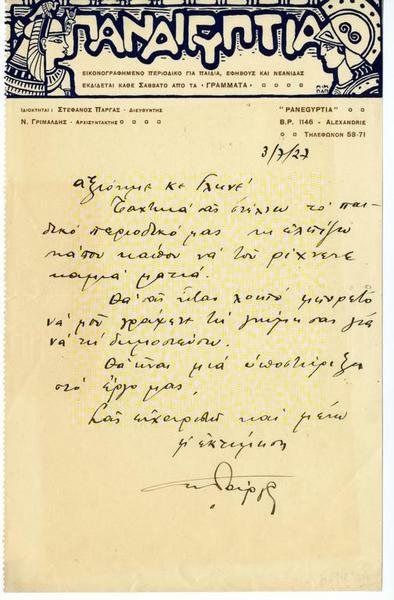 ΠΑΝΑΙΓΥΠΤΙΑ
ΕΙΚΟΝΟΓΡΑΦΗΜΕΝΟ ΠΕΡΙΟΔΙΚΟ ΓΙΑ ΠΑΙΔΙΑ, ΕΦΗΒΟΥΣ ΚΑΙ ΝΕΑΝΙΔΑΣ
ΕΚΔΙΔΕΤΑΙ ΚΑΘΕ ΣΑΒΒΑΤΟ ΑΠΟ ΤΑ · ΓΡΑΜΜΑΤΑ ·
ΙΔΙΟΚΤΗΤΑΙ : ΣΤΕΦΑΝΟΣ ΠΑΡΓΑΣ · ΔΙΕΥΘΥΝΤΗΣ
Ν. ΓΡΙΜΑΛΔΗΣ · ΑΡΧΕΙΣΥΝΤΑΚΤΗΣ
"PANEGYPTIA"
B.P. 1146 – ALEXANDRIE
ΤΗΛΕΦΩΝΟΝ 58-71
3/7/27
Ταχτικά σας στέλνω το παι-
δικό περιοδικό μας κι ελπίζω
κάπου κάπου να του ρίχνετε
καμμιά ματιά.
Θα σας ήταν λοιπό μπορετό
να μου γράψετε τη γνώμη σας για
να τη δημοσιεύσω.
Θα είναι μιά υποστήριξη
στο έργο μας.
Σας ευχαριστώ και μένω
μ' εκτίμηση